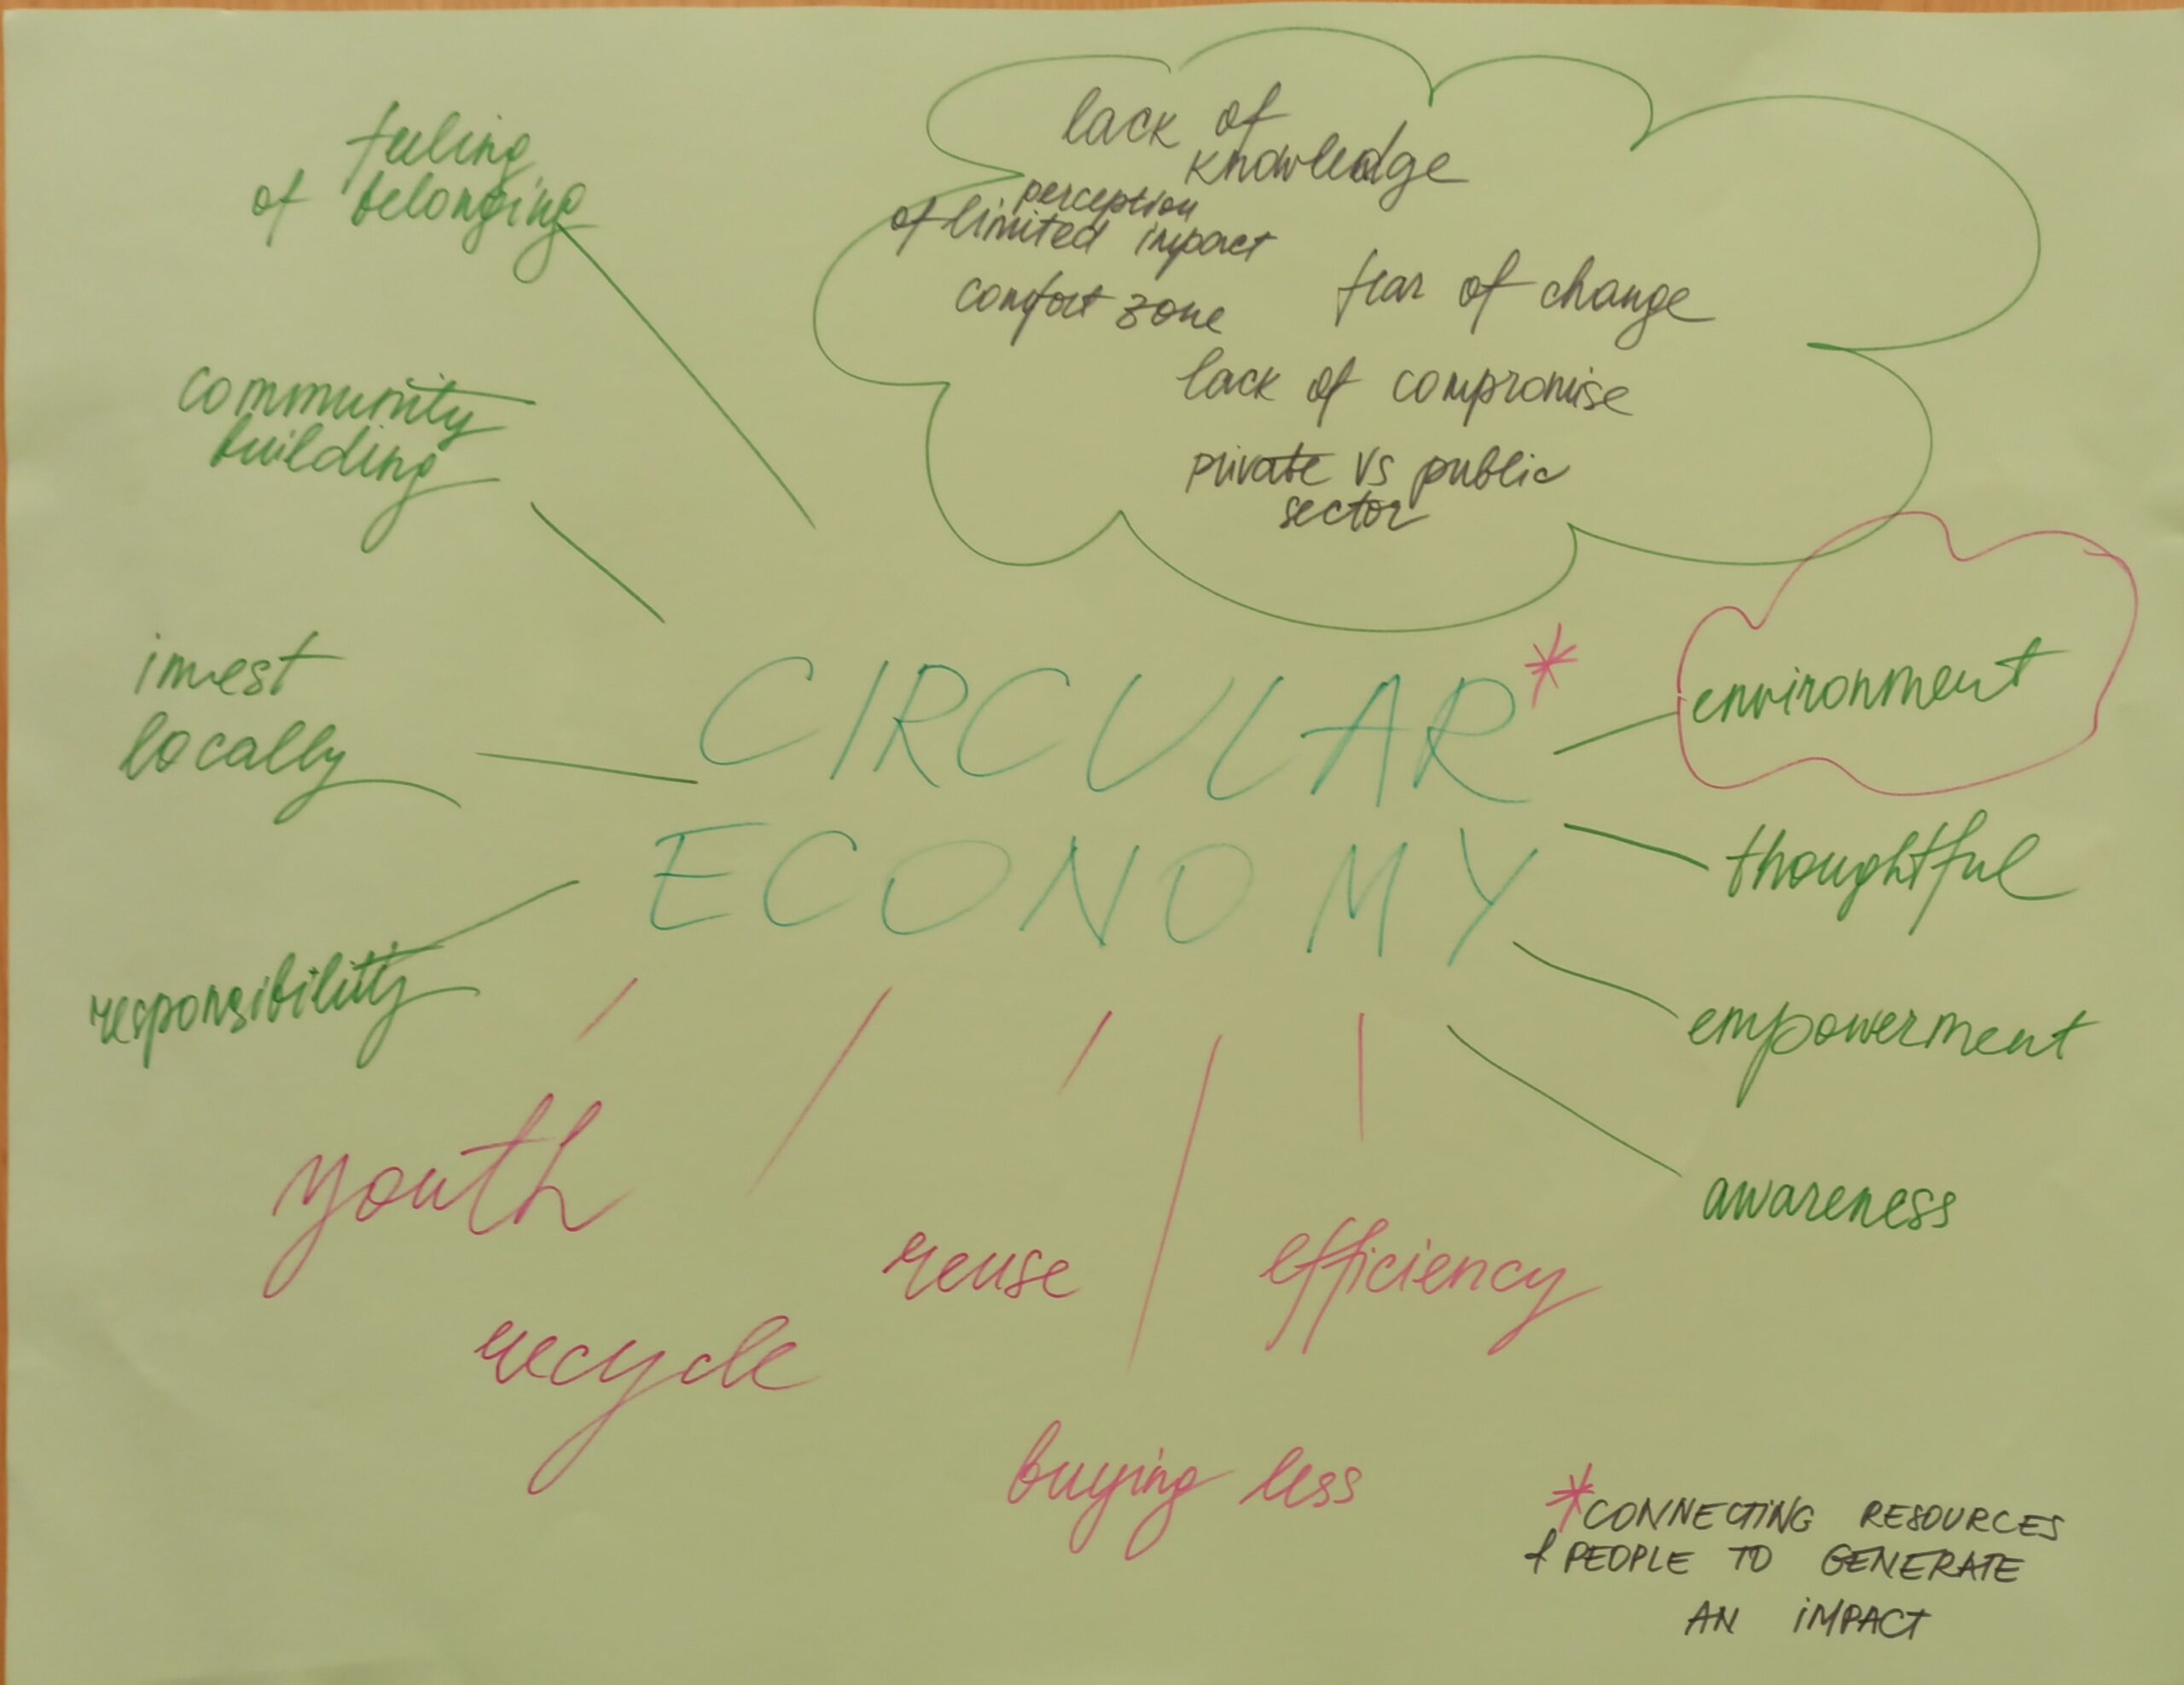 feeling
of belonging
community
building
invest
locally
responsibility
lack of
knowledge
perception
of limited impact
comfort zone
fear of change
lack of compromise
private vs public
sector
CIRCULAR*
ECONOMY
environment
thoughtful
empowerment
awareness
youth
recycle
reuse
buying less
efficiency
*CONNECTING RESOURCES
& PEOPLE TO GENERATE
AN IMPACT